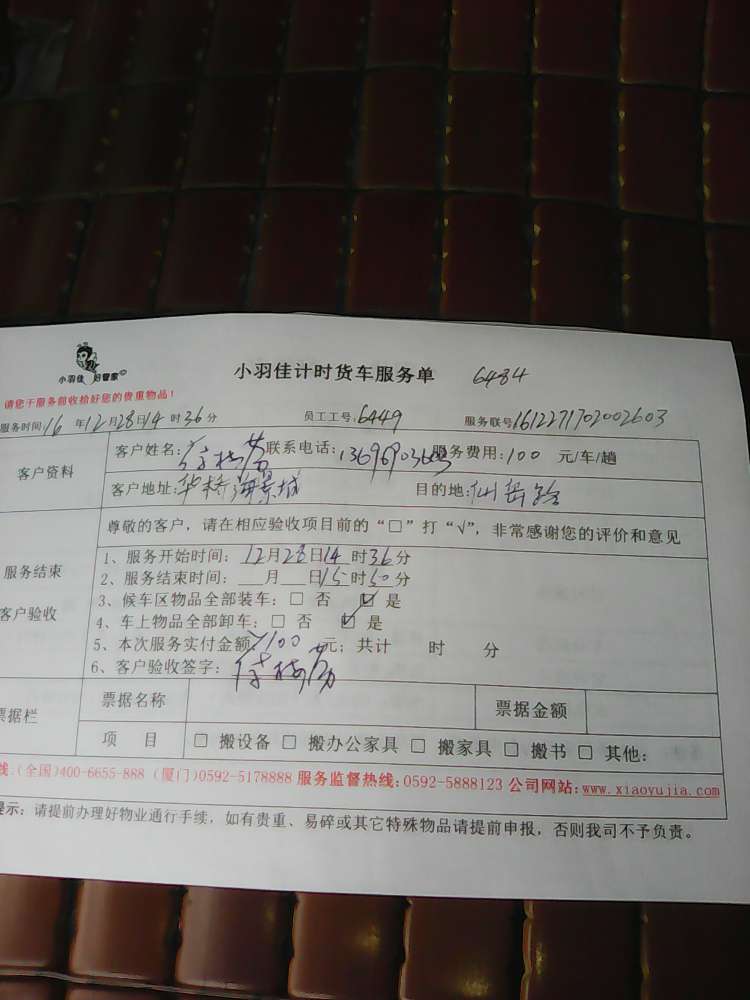 小羽佳 好管家
小羽佳计时货车服务单 6484
请您于服务前收拾好您的贵重物品！
服务时间16年12月28日14时36分 员工工号：6449 服务联号1612271702002603
客户资料
客户姓名： 联系电话： 服务费用：100 元/车/趟
客户地址：华林海景城 目的地：仙岳路
尊敬的客户，请在相应验收项目前的“□”打“√”，非常感谢您的评价和意见
服务结束
客户验收
1、服务开始时间：12月28日14时36分
2、服务结束时间：__月__日15时50分
3、候车区物品全部装车：□ 否 ☑ 是
4、车上物品全部卸车：□ 否 ☑ 是
5、本次服务实付金额：¥100 元；共计 时 分
6、客户验收签字：
票据栏
票据名称 票据金额
项 目 □ 搬设备 □ 搬办公家具 □ 搬家具 □ 搬书 □ 其他：
线：(全国)400-6655-888 (厦门)0592-5178888 服务监督热线：0592-5888123 公司网站：www.xiaoyujia.com
提示：请提前办理好物业通行手续，如有贵重、易碎或其它特殊物品请提前申报，否则我司不予负责。